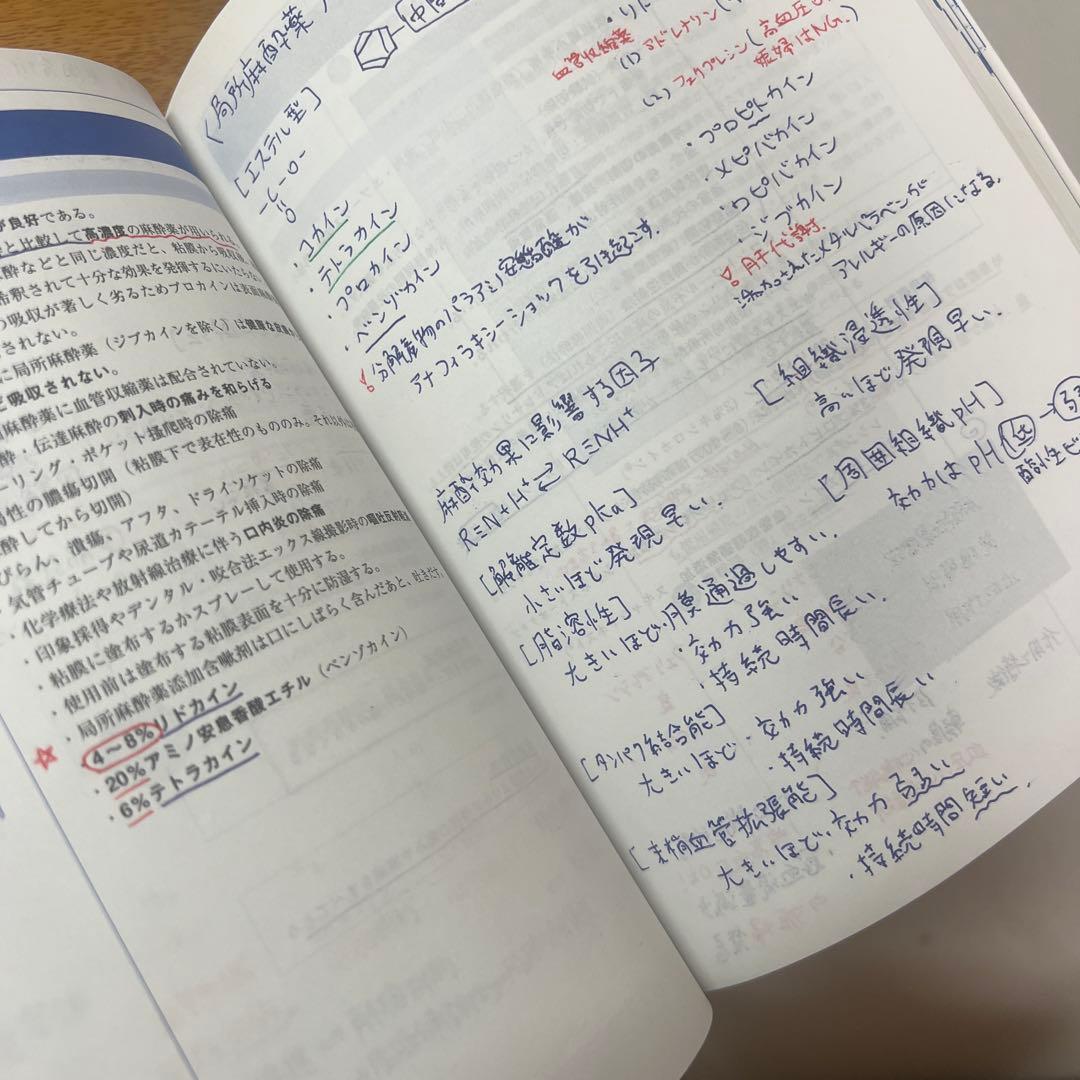 が良好である。
と比較して高濃度の麻酔薬が用いられ
麻酔などと同じ濃度だと、粘膜から吸収
希釈されて十分な効果を発揮するにいたらな
の吸収が著しく劣るためプロカインは表面麻酔
されない。
に局所麻酔薬（ジブカインを除く）は健康な
と吸収されない。
麻酔薬に血管収縮薬は配合されていない。
酔・伝達麻酔の刺入時の痛みを和らげる
ーリング・ポケット掻爬時の除痛
性の膿瘍切開（粘膜下で表在性のもののみ。それ以外は
酔してから切開）
びらん、潰瘍、アフタ、ドライソケットの除痛
気管チューブや尿道カテーテル挿入時の除痛
・化学療法や放射線治療に伴う口内炎の除痛
・印象採得やデンタル・咬合法エックス線撮影時の嘔吐反射
・粘膜に塗布するかスプレーして使用する。
・使用前は塗布する粘膜表面を十分に防湿する。
・局所麻酔薬添加含嗽剤は口にしばらく含んだあと、吐きだす。
・4〜8%リドカイン
・20%アミノ安息香酸エチル（ベンゾカイン）
・6%テトラカイン
〈局所麻酔薬
中間
[エステル型]
-C-O-
O
・コカイン
・テトラカイン
・プロカイン
・ベンゾカイン
! 分解産物のパラアミノ安息酸が
アナフィラキシーショックを引き起こす。
・リド
血管収縮薬
(1) アドレナリン
(2) フェリプレシン(高血圧
妊婦はNG.)
・プロピトカイン
・メピバカイン
・ロピバカイン
・ジブカイン
! 肝代謝
添加されたメチルパラベンが
アレルギーの原因になる。
麻酔効果に影響する因子
R≡N+H⁺⇄R≡NH⁺
[解離定数pKa]
小さいほど発現早い.
[脂溶性]
大きいほど・膜通過しやすい.
・効力強い
・持続時間長い.
[タンパク結合能]
大きいほど・効力強い
・持続時間長い
[末梢血管拡張能]
大きいほど・効力弱い
・持続時間短い.
[組織浸透性]
高いほど発現早い.
[周囲組織pH]
効力はpH低→弱
酸性